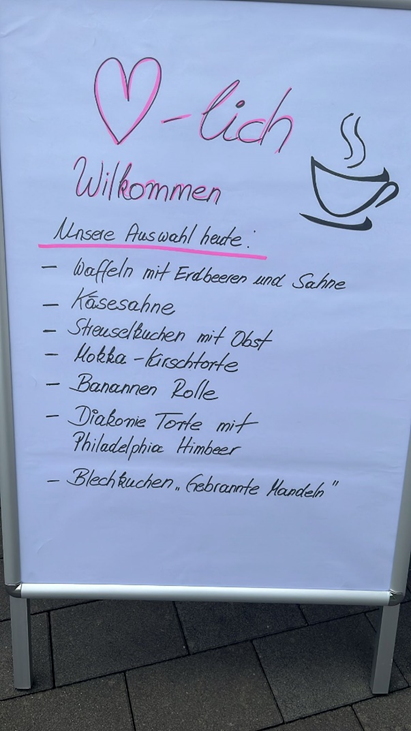 ♡-lich
Wilkommen
Unsere Auswahl heute:
- Waffeln mit Erdbeeren und Sahne
- Käsesahne
- Streuselkuchen mit Obst
- Mokka-Kirschtorte
- Banannen Rolle
- Diakonie Torte mit
Philadelphia Himbeer
- Blechkuchen „Gebrannte Mandeln"